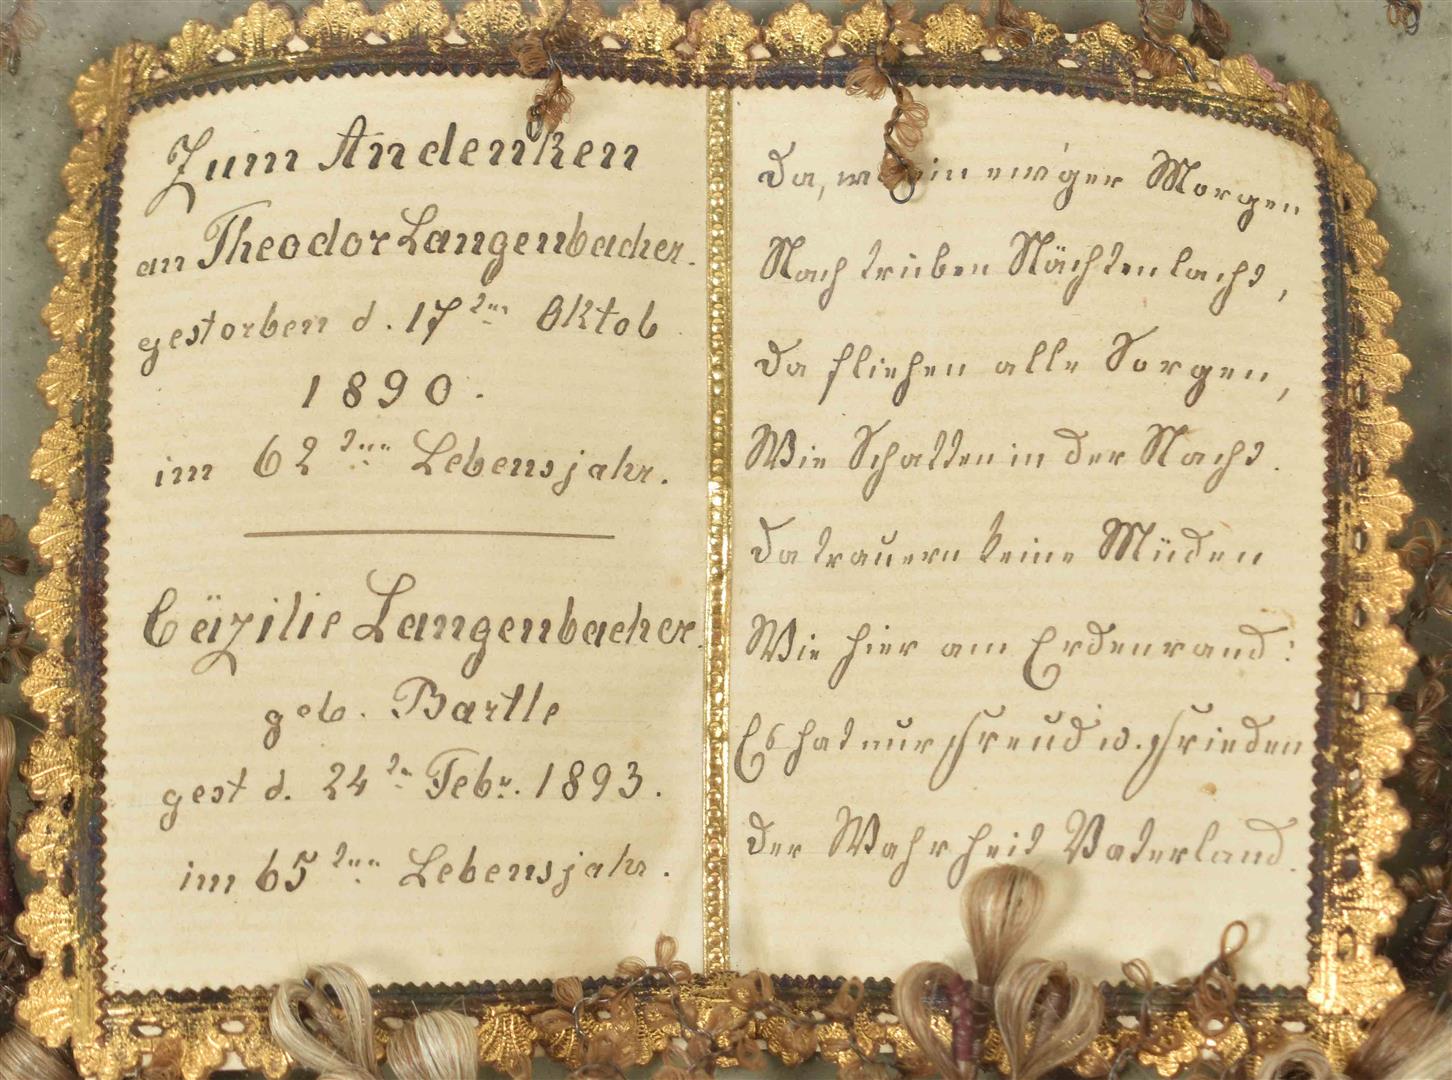 Zum Andenken
an Theodor Langenbacher.
gestorben d. 17ten Oktob
1890.
im 62ten Lebensjahr.
Cäzilie Langenbacher.
geb. Bartle
gest d. 24tn Febr. 1893.
im 65ten Lebensjahr.
Da, wo ein ew'ger Morgen
Nach trüben Nächten lacht,
Da fliehen alle Sorgen,
Wie Schatten in der Nacht.
Da trauern keine Müden
Wie hier am Erdenrand:
Es hat nur Freud u. Frieden
der Wahrheit Vaterland.